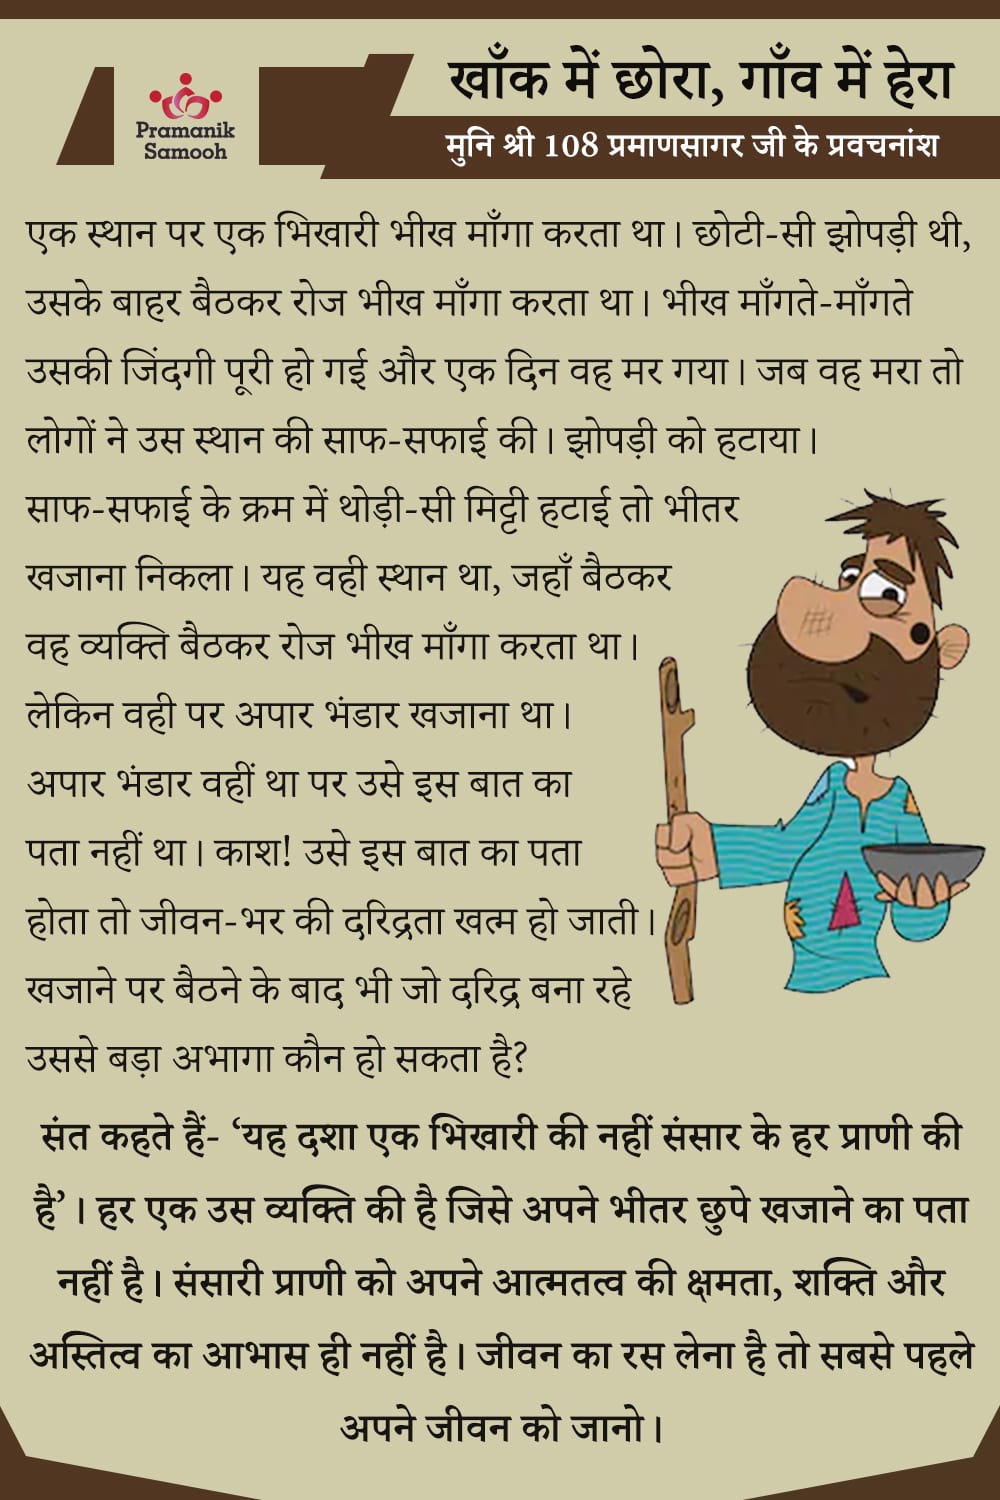 खाँक में छोरा, गाँव में हेरा
Pramanik
Samooh
मुनि श्री 108 प्रमाणसागर जी के प्रवचनांश
एक स्थान पर एक भिखारी भीख माँगा करता था। छोटी-सी झोपड़ी थी,
उसके बाहर बैठकर रोज भीख माँगा करता था। भीख माँगते-माँगते
उसकी जिंदगी पूरी हो गई और एक दिन वह मर गया। जब वह मरा तो
लोगों ने उस स्थान की साफ-सफाई की। झोपड़ी को हटाया।
साफ-सफाई के क्रम में थोड़ी-सी मिट्टी हटाई तो भीतर
खजाना निकला। यह वही स्थान था, जहाँ बैठकर
वह व्यक्ति बैठकर रोज भीख माँगा करता था।
लेकिन वही पर अपार भंडार खजाना था।
अपार भंडार वहीं था पर उसे इस बात का
पता नहीं था। काश! उसे इस बात का पता
होता तो जीवन-भर की दरिद्रता खत्म हो जाती।
खजाने पर बैठने के बाद भी जो दरिद्र बना रहे
उससे बड़ा अभागा कौन हो सकता है?
संत कहते हैं- ‘यह दशा एक भिखारी की नहीं संसार के हर प्राणी की
है’। हर एक उस व्यक्ति की है जिसे अपने भीतर छुपे खजाने का पता
नहीं है। संसारी प्राणी को अपने आत्मतत्व की क्षमता, शक्ति और
अस्तित्व का आभास ही नहीं है। जीवन का रस लेना है तो सबसे पहले
अपने जीवन को जानो।